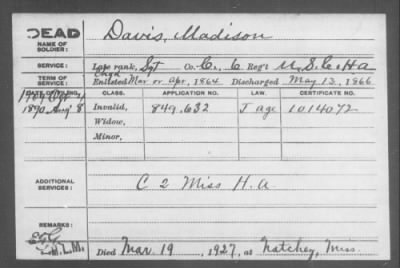 DEAD
NAME OF SOLDIER:
Davis, Madison
SERVICE:
Late rank, Sgt Co. C., 6 Reg't U.S.C. H A
TERM OF SERVICE:
Enlisted Mar or Apr, 1864 Discharged May 13, 1866
DATE OF FILING. CLASS. APPLICATION NO. LAW. CERTIFICATE NO.
1890 Aug 8 Invalid, 849.632 J age 1014072
Widow,
Minor,
ADDITIONAL SERVICES:
C 2 Miss H.A.
REMARKS:
Died Mar. 19, 1927, at Natchez, Miss.